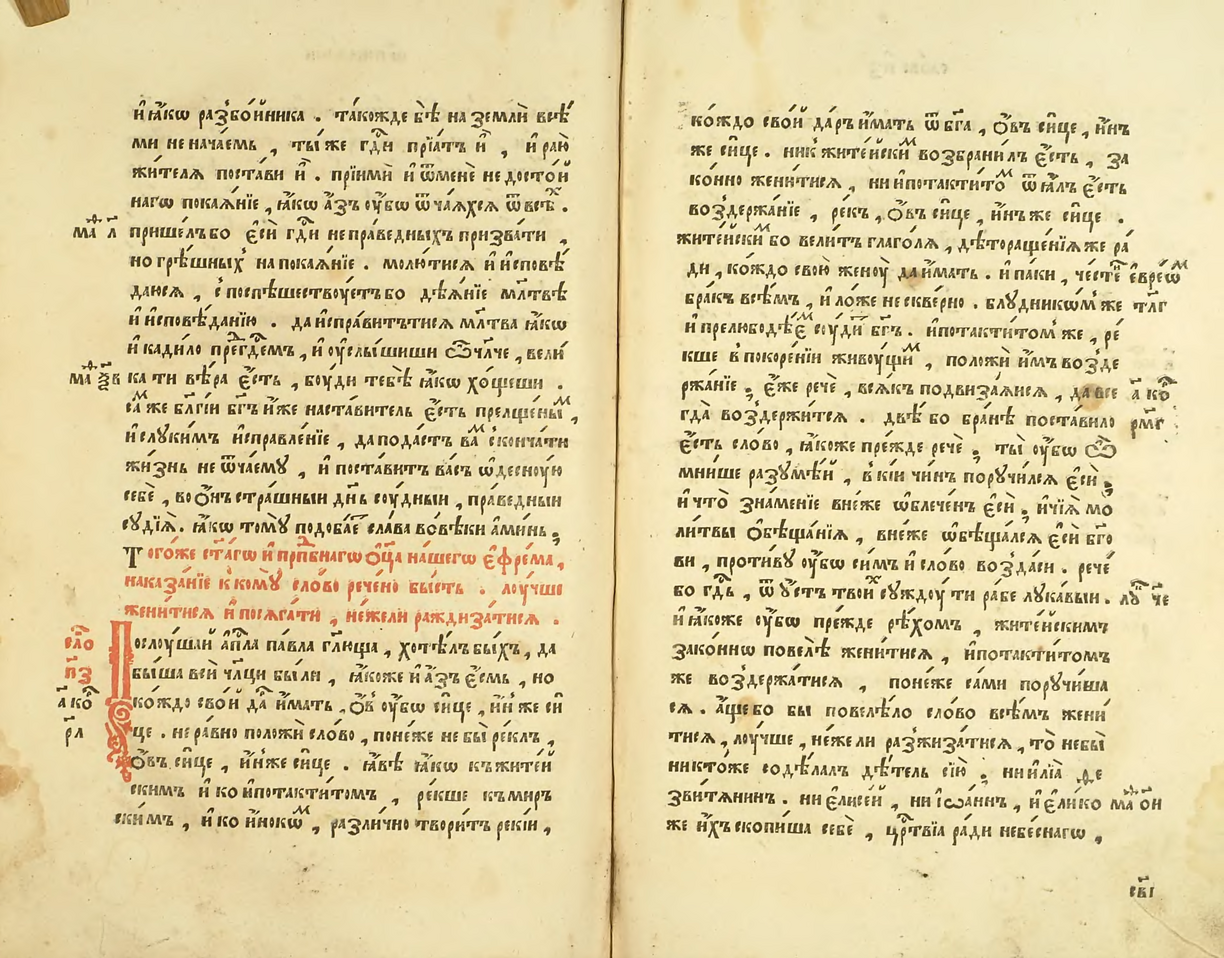 и҆ ꙗ҆́кѡ разбо́йника . та́кожде бѣ̀ на землѝ всѣ́
ми не нача́емь , ты́ же гдⷭ҇и прїѧ́тъ и҆̀ , и҆ раю̀
жи́телѧ поста́ви и҆̀ . прїимѝ и҆ ѿменѐ недосто́й
наго покаѧ́нїе , ꙗ҆́кѡ а҆́зъ оу҆́бѡ ѿча́ѧхсѧ ѿ всѣⷯ .
маⷴ л҃ прише́лъ бо є҆сѝ гдⷭ҇и непра́ведныхъ призва́ти ,
но грѣ́шныхъ на покаѧ́нїе . молю́тисѧ и҆ и҆сповѣ́
даюсѧ , споспѣ́шествоуетъ бо дѣѧ́нїе мл҃твѣ
и҆ и҆сповѣ́данїю . да и҆спра́витътисѧ мл҃тва ꙗ҆́кѡ
и҆ кади́ло преⷣгдⷭ҇емъ , и҆ оу҆слы́шиши ѽ чл҃че , вели́
маⷴ ѯ҃в ка ти вѣ́ра є҆́сть , боу́ди тебѣ̀ ꙗ҆́кѡ хо́щеши .
саⷨ же бл҃гїи бг҃ъ и҆́же наста́витель є҆́сть прелще́ныⷨ ,
и҆ слꙋки́мъ и҆справле́нїе , да пода́стъ ваⷨ сконча́ти
жи́знь не ѿча́емꙋ , и҆ поста́витъ ва́съ ѡ҆десноу́ю
себѐ , во ѻ҆́нъ стра́шныи дн҃ь соу́дныи , пра́ведныи
сꙋдїѧ̀ . ꙗ҆́кѡ томꙋ̀ подоба́еⷮ сла́ва вовѣ́ки а҆ми́нь .
Того́же ст҃а́гѡ и҆ прⷣпбнагѡ ѻ҆ц҃а на́шегѡ є҆фре́ма ,
наказа́нїе к комꙋ̀ сло́во речено̀ бы́сть . лоу́чше
жени́тисѧ и҆ посѧга́ти , не́жели ражди́затисѧ .
сло́ Послоу́шай а҆пⷭ҇ла па́вла гл҃юща , хотѣ́лъ бы́хъ , да
п҃з бы́ша вси̑ чл҃цы бы́ли , ꙗ҆́коже и҆ а҆́зъ є҆́смь , но
а҃ коⷬ ко́ждо сво́й даⷬ и҆́мать , ѻ҆́въ оу҆́бѡ си́це , и҆́нъ же си́
р҃л це . не ра́вно положѝ сло́во , поне́же не бы̀ ре́клъ ,
ѻ҆́въ си́це , и҆́нже си́це . ꙗ҆́вѣ ꙗ҆́кѡ къ жите́й
скимъ и҆ ко и҆потакти́томъ , ре́кше къ мир
скимъ , и҆ ко и҆́нокѡⷨ , разли́чно твори́тъ реки́и ,
ко́ждо сво́й да́ръ и҆́мать ѿ бг҃а , ѻ҆́въ си́це , и҆́нъ
же си́це . ник жите́йскиⷨ возбрани́лъ є҆́сть , за
ко́нно жени́тисѧ , ни и҆потакти́тоⷨ ѿꙗ҆́лъ є҆́сть
воздержа́нїе , ре́къ , ѻ҆́въ си́це , и҆́нъ же си́це .
жите́йскиⷨ бо вели́тъ глаго́лѧ , дѣ́тораще́нїѧ же ра́
ди , ко́ждо свою̀ женоу̀ да и҆́мать . и҆ па́ки , че́стⷩ҇ѣ є҆вре́ѡⷨ
бра́къ всѣ́мъ , и҆ ло́же не скве́рно . блꙋдникѡ́м же т҃лг
и҆ прелюбодѣ́єⷨ соу́ди́ⷮ бг҃ъ . и҆потакти́том же , ре́
кше в покоре́нїи живоу́щиⷨ , положѝ и҆́мъ возде
ржа́нїе , є҆́же речѐ , всѧ́къ подвиза́ѧисѧ , да все а҃ коⷬ
гда̀ воздержи́тсѧ . двѣ́ бо бра́нѣ поста́вило рмг
є҆́сть сло́во , ꙗ҆́коже пре́жде речѐ , ты̀ оу҆́бѡ ѽ
мни́ше разꙋмѣ́й , в кі́и чи́нъ порꙋчи́лсѧ є҆сѝ ,
и҆ что̀ зна́менїе вне́же ѡ҆блече́нъ є҆сѝ , и҆ чїѧ̀ мо
ли́твы ѻ҆бѣща́нїѧ , вне́же ѡ҆бѣща́лсѧ є҆сѝ бг҃о
ви , проти́вꙋ оу҆́бѡ си́мъ и҆ сло́во возда́си . речѐ
бо гдⷭ҇ь , ѿ оу҆́стъ твоиⷯ сꙋждоу́ ти ра́бе лꙋка́выи . лꙋⷦ҇ ч҃е
и҆ ꙗ҆́коже оу҆́бѡ пре́жде рѣ́хомъ , жите́йскимъ
зако́ннѡ повелѣ̀ жени́тисѧ , и҆потакти́томъ
же воздержа́тисѧ , поне́же са́ми порꙋчи́ша
сѧ . а҆́ще бо бы повелѣ́ло сло́во всѣ́мъ жени́
тисѧ , лоу́чше , не́жели разжиза́тисѧ , то̀ не бы̀
никто́же содѣ́лалъ дѣ́тель сїю̀ , ни и҆лїа̀ ѳе
зви́тѧнинъ . ни є҆лисе́й , ни і҆ѡа́ннъ , и҆ є҆ли́ко маⷴ ѻ҆и
же и҆́хъ скопи́ша себѐ , црⷭ҇твїа ра́ди небе́снагѡ ,
св҃і